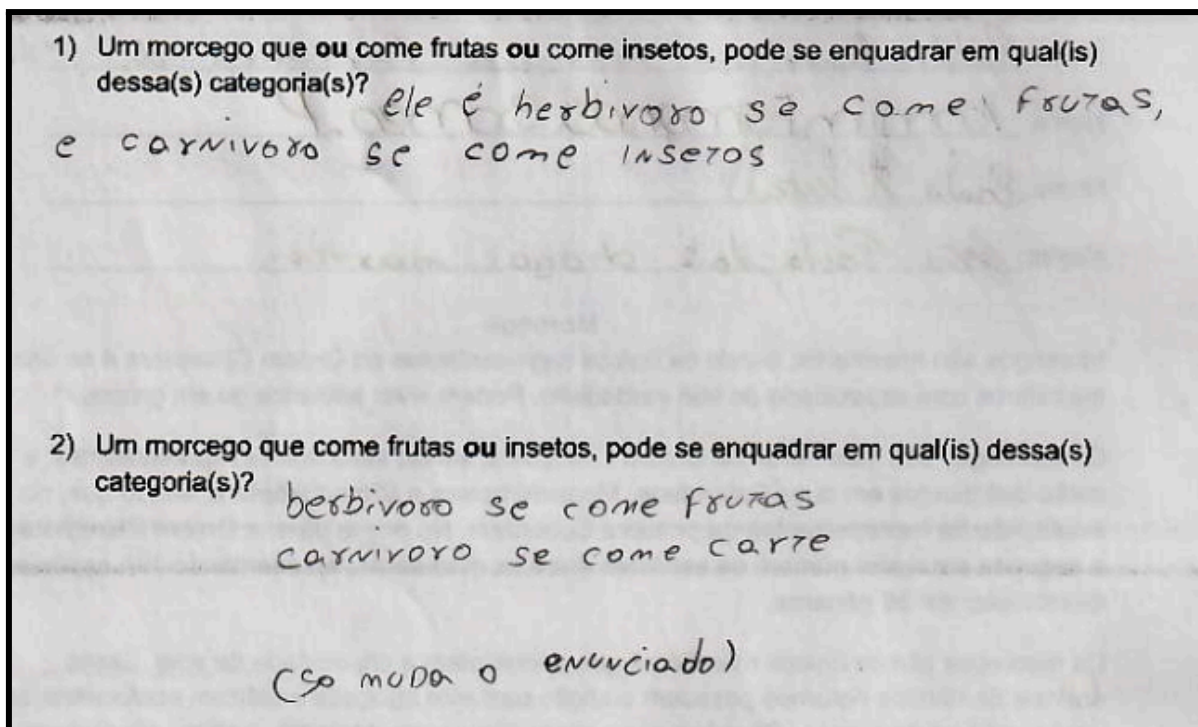 1) Um morcego que ou come frutas ou come insetos, pode se enquadrar em qual(is)
dessa(s) categoria(s)?
ele é herbivoro se come frutas,
e carnivoro se come insetos
2) Um morcego que come frutas ou insetos, pode se enquadrar em qual(is) dessa(s)
categoria(s)?
herbivoro se come frutas
carnivoro se come carte
(so muda o enunciado)